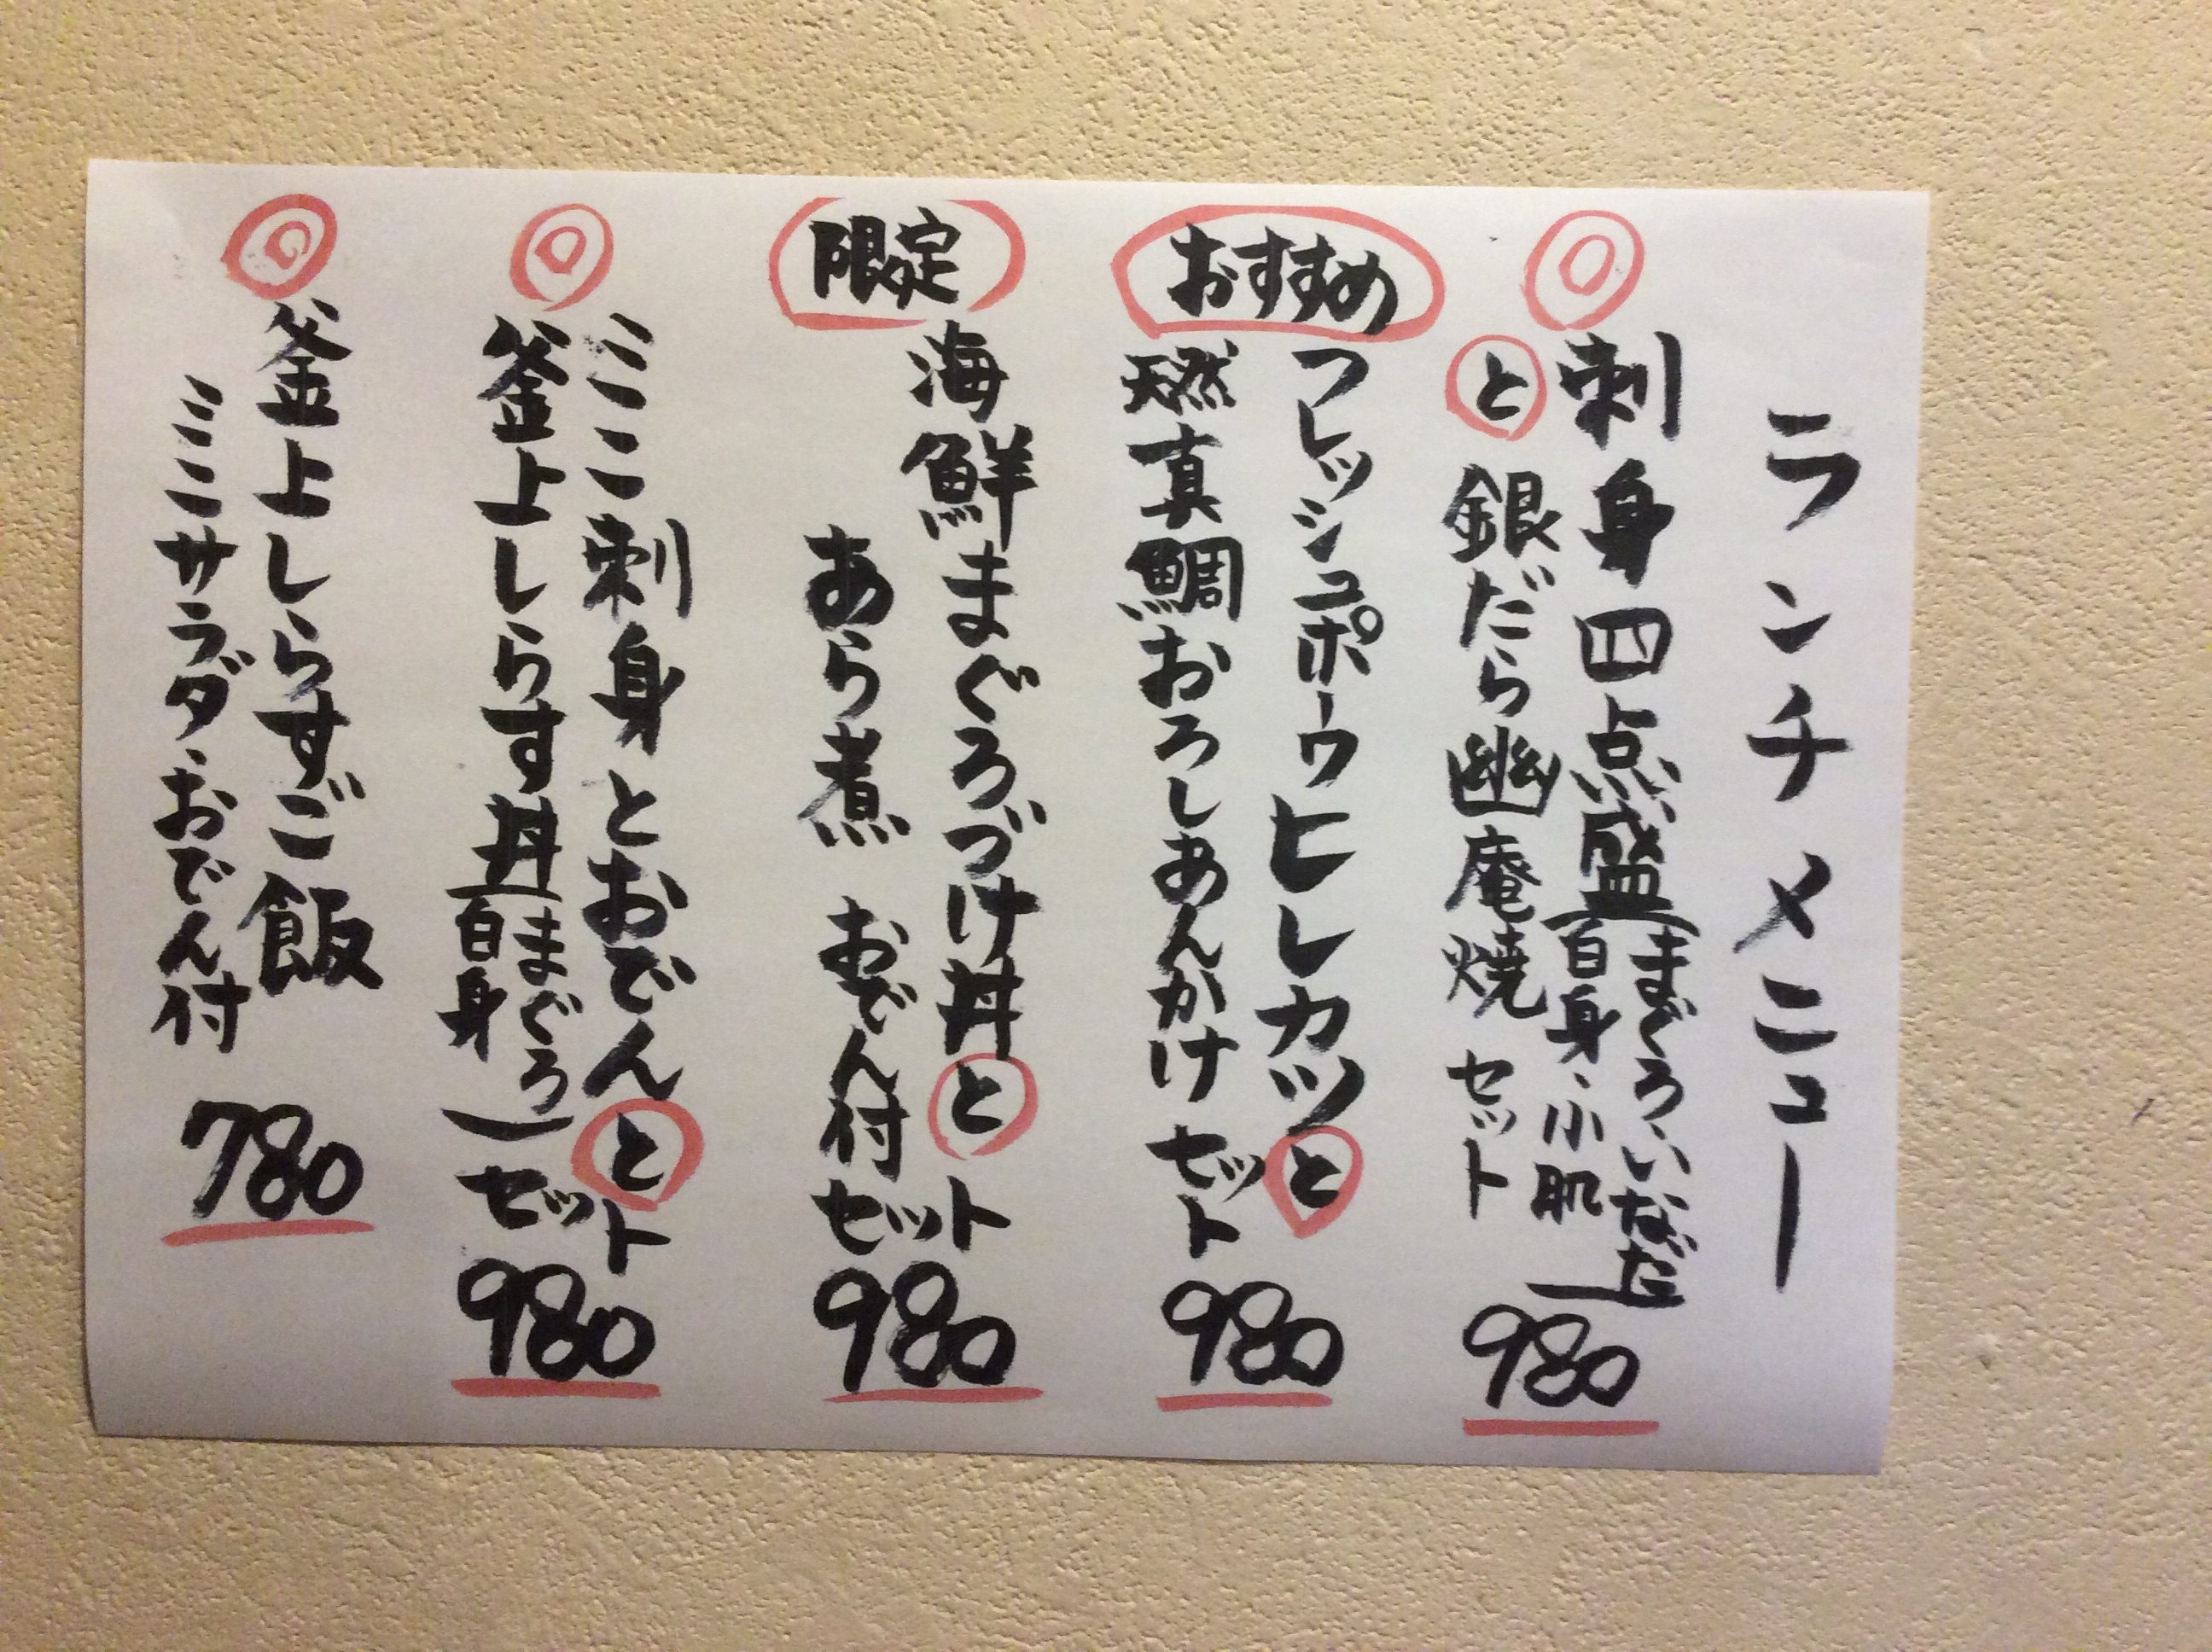 ランチメニュー
◎刺身四点盛(まぐろ・いなだ
白身・小肌)
と銀だら幽庵焼セット
980
おすすめ
フレッシュポークヒレカツと
天然真鯛おろしあんかけセット
980
限定
海鮮まぐろづけ丼と
あら煮 おでん付セット
980
◎ミニ刺身とおでんと
釜上しらす丼(まぐろ
白身)セット
980
◎釜上しらすご飯
ミニサラダ・おでん付
780